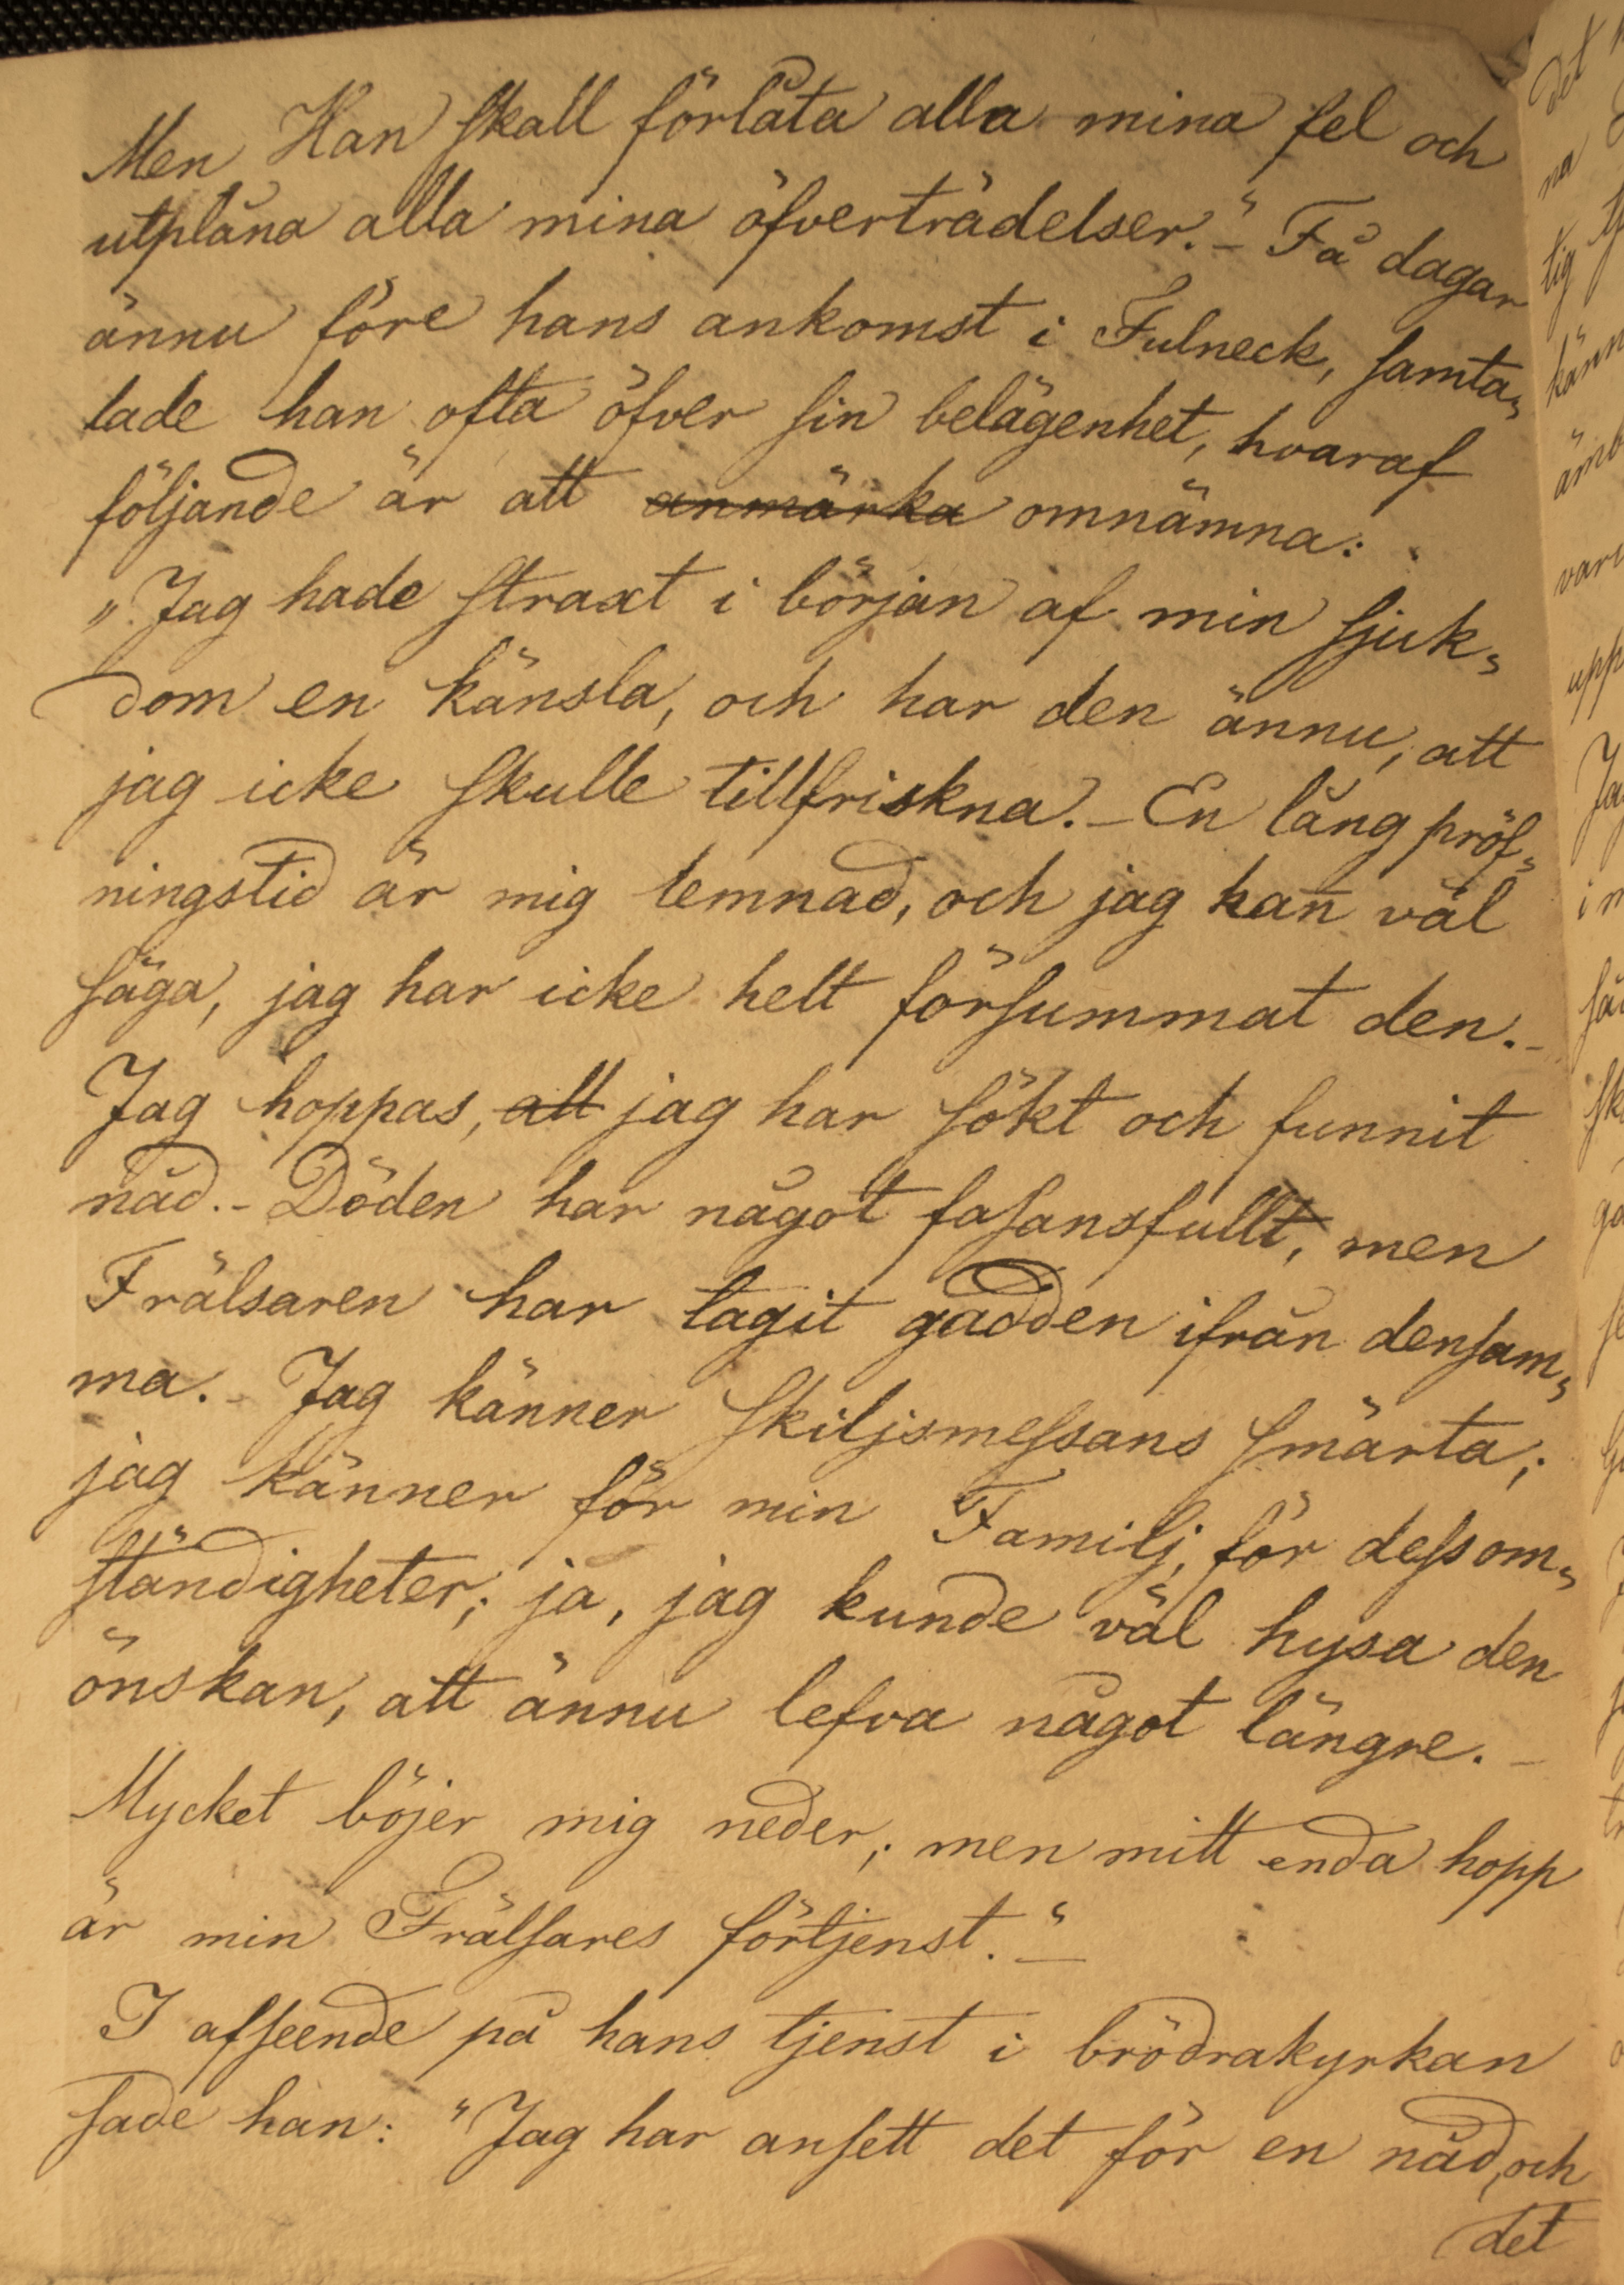 Men Han skall förlåta alla mina fel och
utplåna alla mina öfverträdelser." – Få dagar
ännu före hans ankomst i Fulneck, samta-
lade han ofta öfver sin belägenhet, hvaraf
följande är att anmärka omnämna:
"Jag hade straxt i början af min sjuk-
dom en känsla, och har den ännu, att
jag icke skulle tillfriskna. – En lång pröf-
ningstid är mig lemnad, och jag kan väl
säga, jag har icke helt försummat den. –
Jag hoppas, att jag har sökt och funnit
nåd. – Döden har något fasansfullt, men
Frälsaren har tagit gadden ifrån densam-
ma. – Jag känner skiljsmessans smärta;
jag känner för min Familj, för dess om-
ständigheter; ja, jag kunde väl hysa den
önskan, att ännu lefva något längre. –
Mycket böjer mig neder; men mitt enda hopp
är min Frälsares förtjenst." –
I afseende på hans tjenst i brödrakyrkan
sade han: "Jag har ansett det för en nåd, och
det